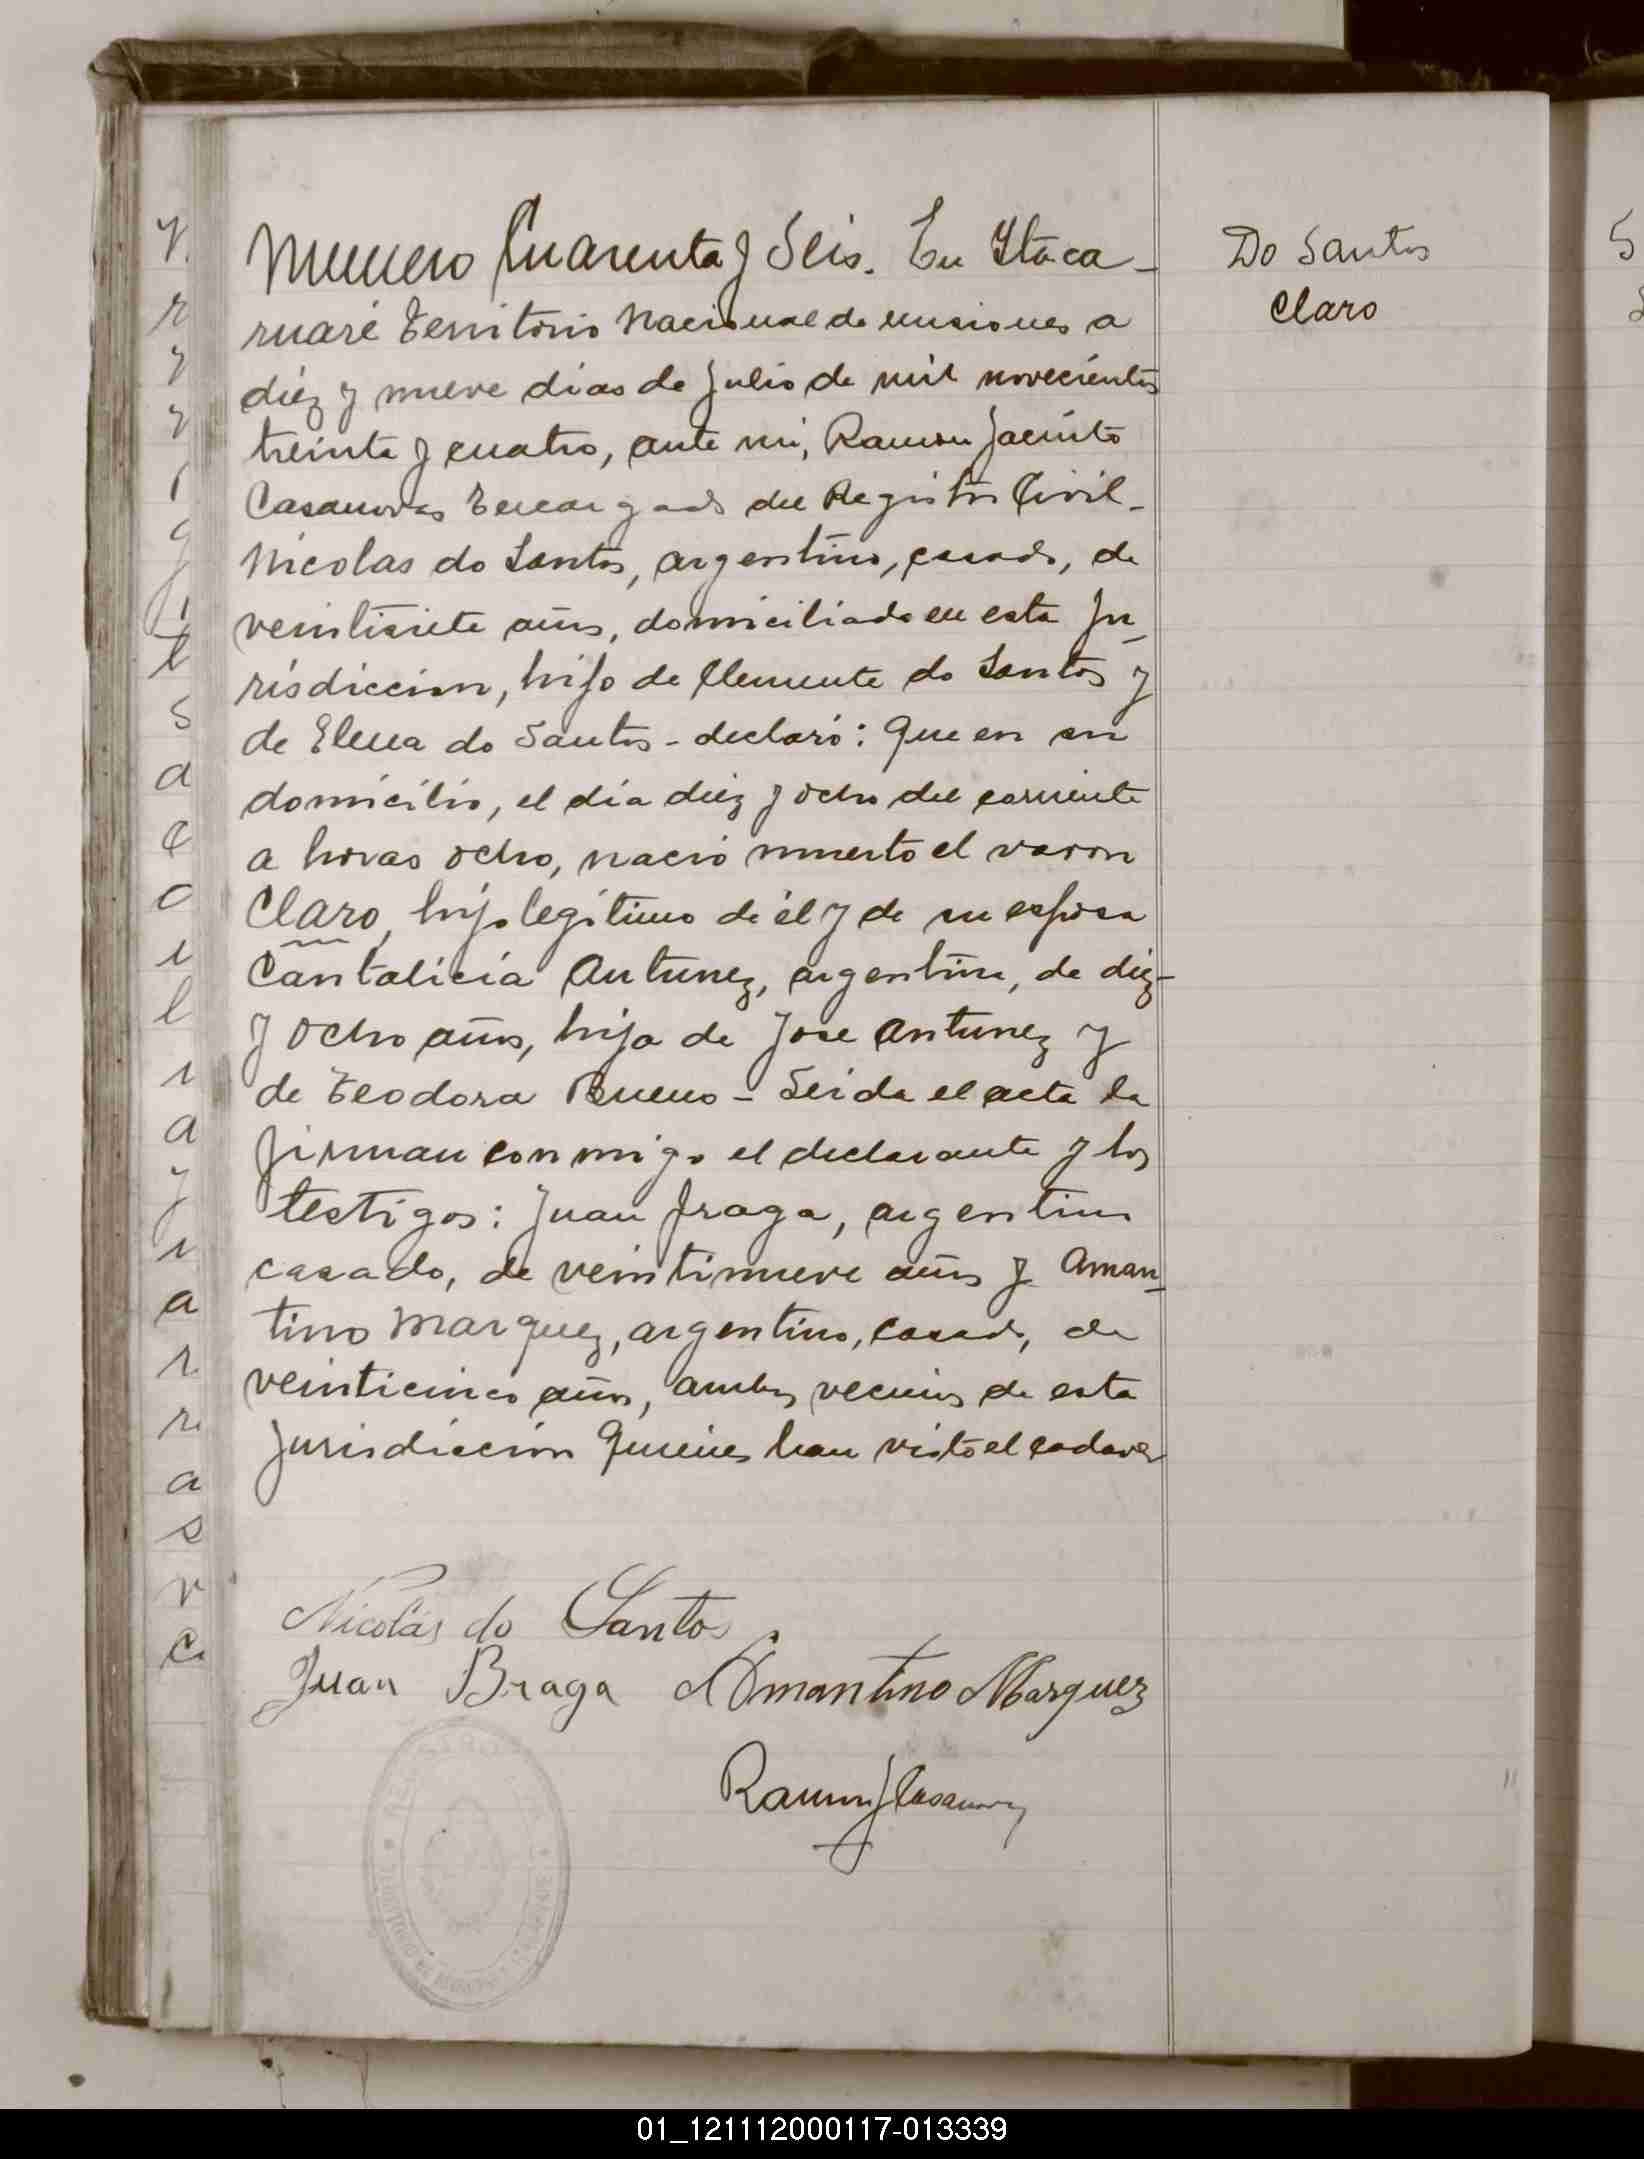 Numero Cuarenta y Seis. En Itaca-
ruaré Territorio Nacional de misiones a
diéz y nueve dias de Julio de mil novecientos
treinta y cuatro, ante mi, Ramon Jacinto
Casanovas Encargado del Registro Civil-
Nicolas do Santos, argentino, casado, de
veintisiete años, domiciliado en esta Ju-
risdiccion, hijo de Clemente do Santos y
de Elena do Santos - declaró: Que en su
domicilio, el dia diez y ocho del corriente
a horas ocho, nació muerto el varon
Claro, hijo legítimo de él y de su esposa
Cantalicia Antunez, argentina, de diez-
y ocho años, hija de Jose Antunez y
de Teodora Bueno - Leida el acta la
firman conmigo el declarante y los
testigos: Juan Braga, argentino
casado, de veintinueve años y Aman-
tino Marquez, argentino, casado, de
veinticinco años, ambos vecinos de esta
Jurisdicción Quienes han visto el cadaver
Do Santos
Claro
Nicolás do Santos
Juan Braga Amantino Marquez
Ramon J Casanovas
01_121112000117-013339